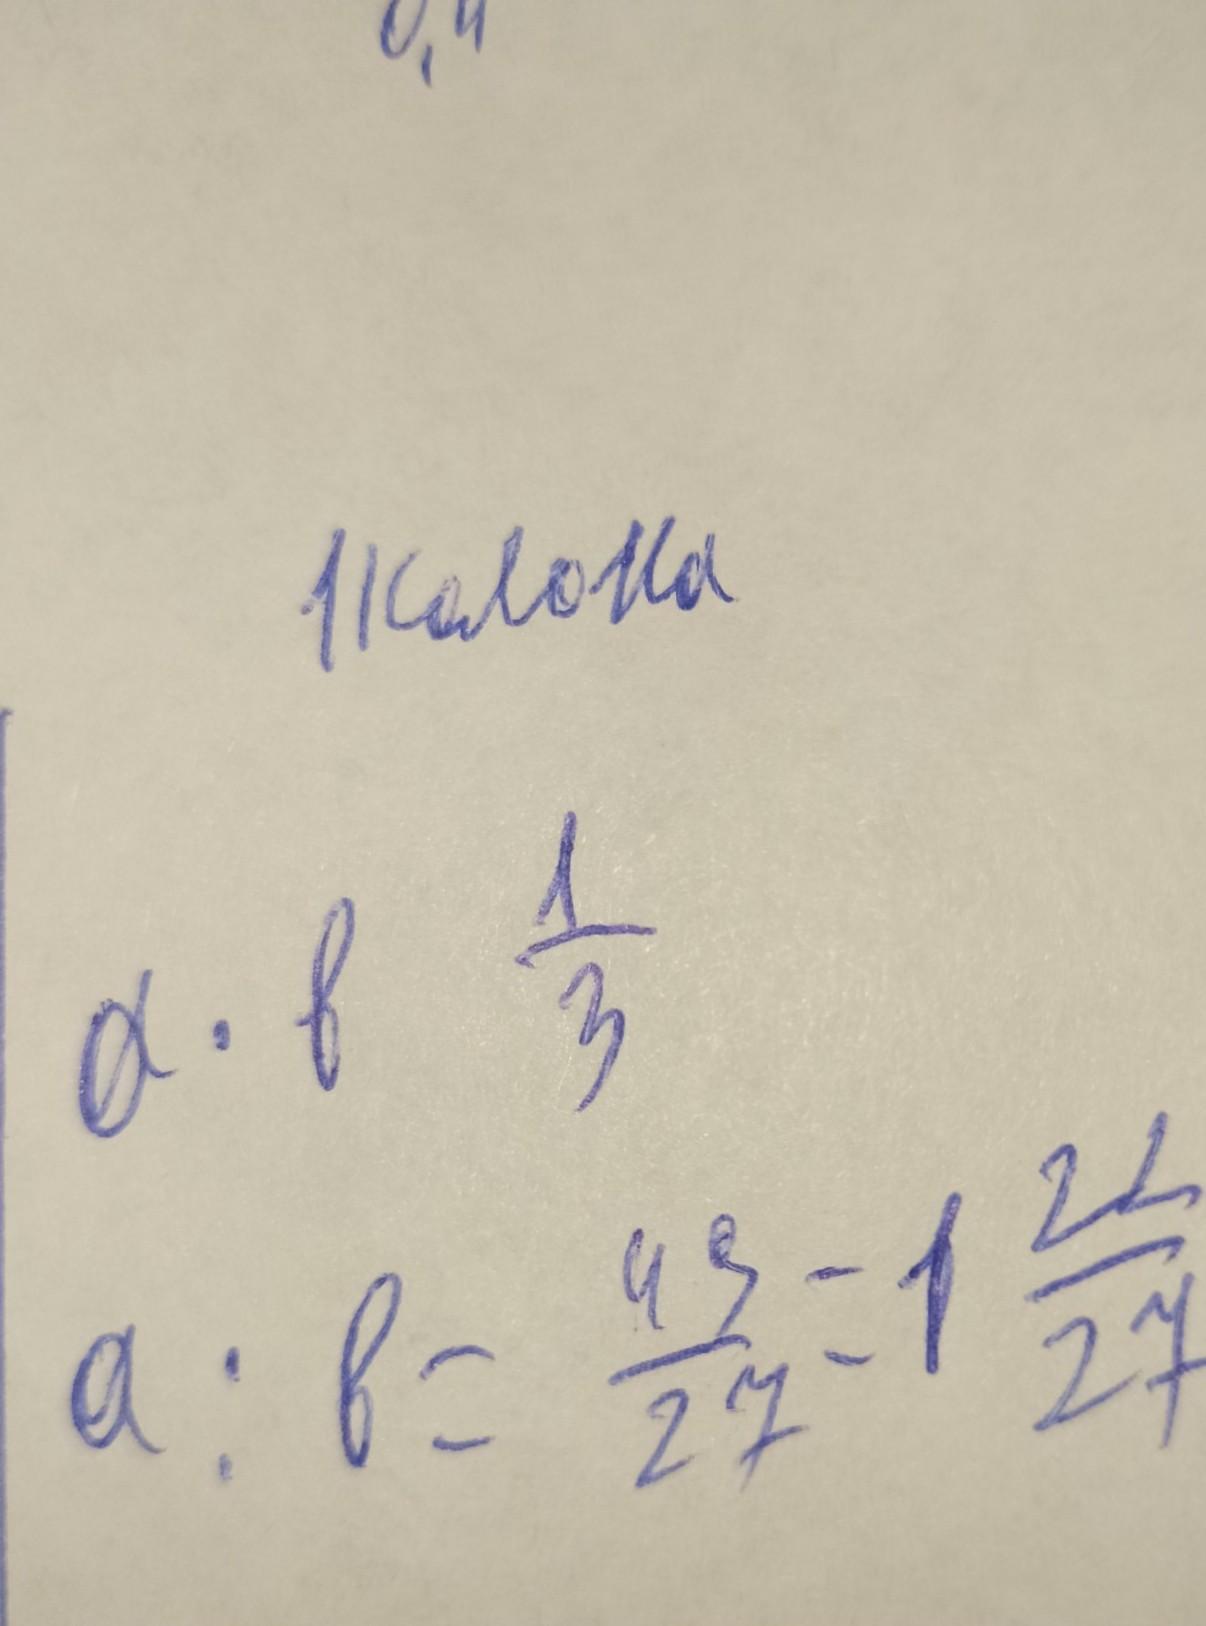 0,4
1 калонка
a · b 1/3
a : b = 49/27 = 1 22/27